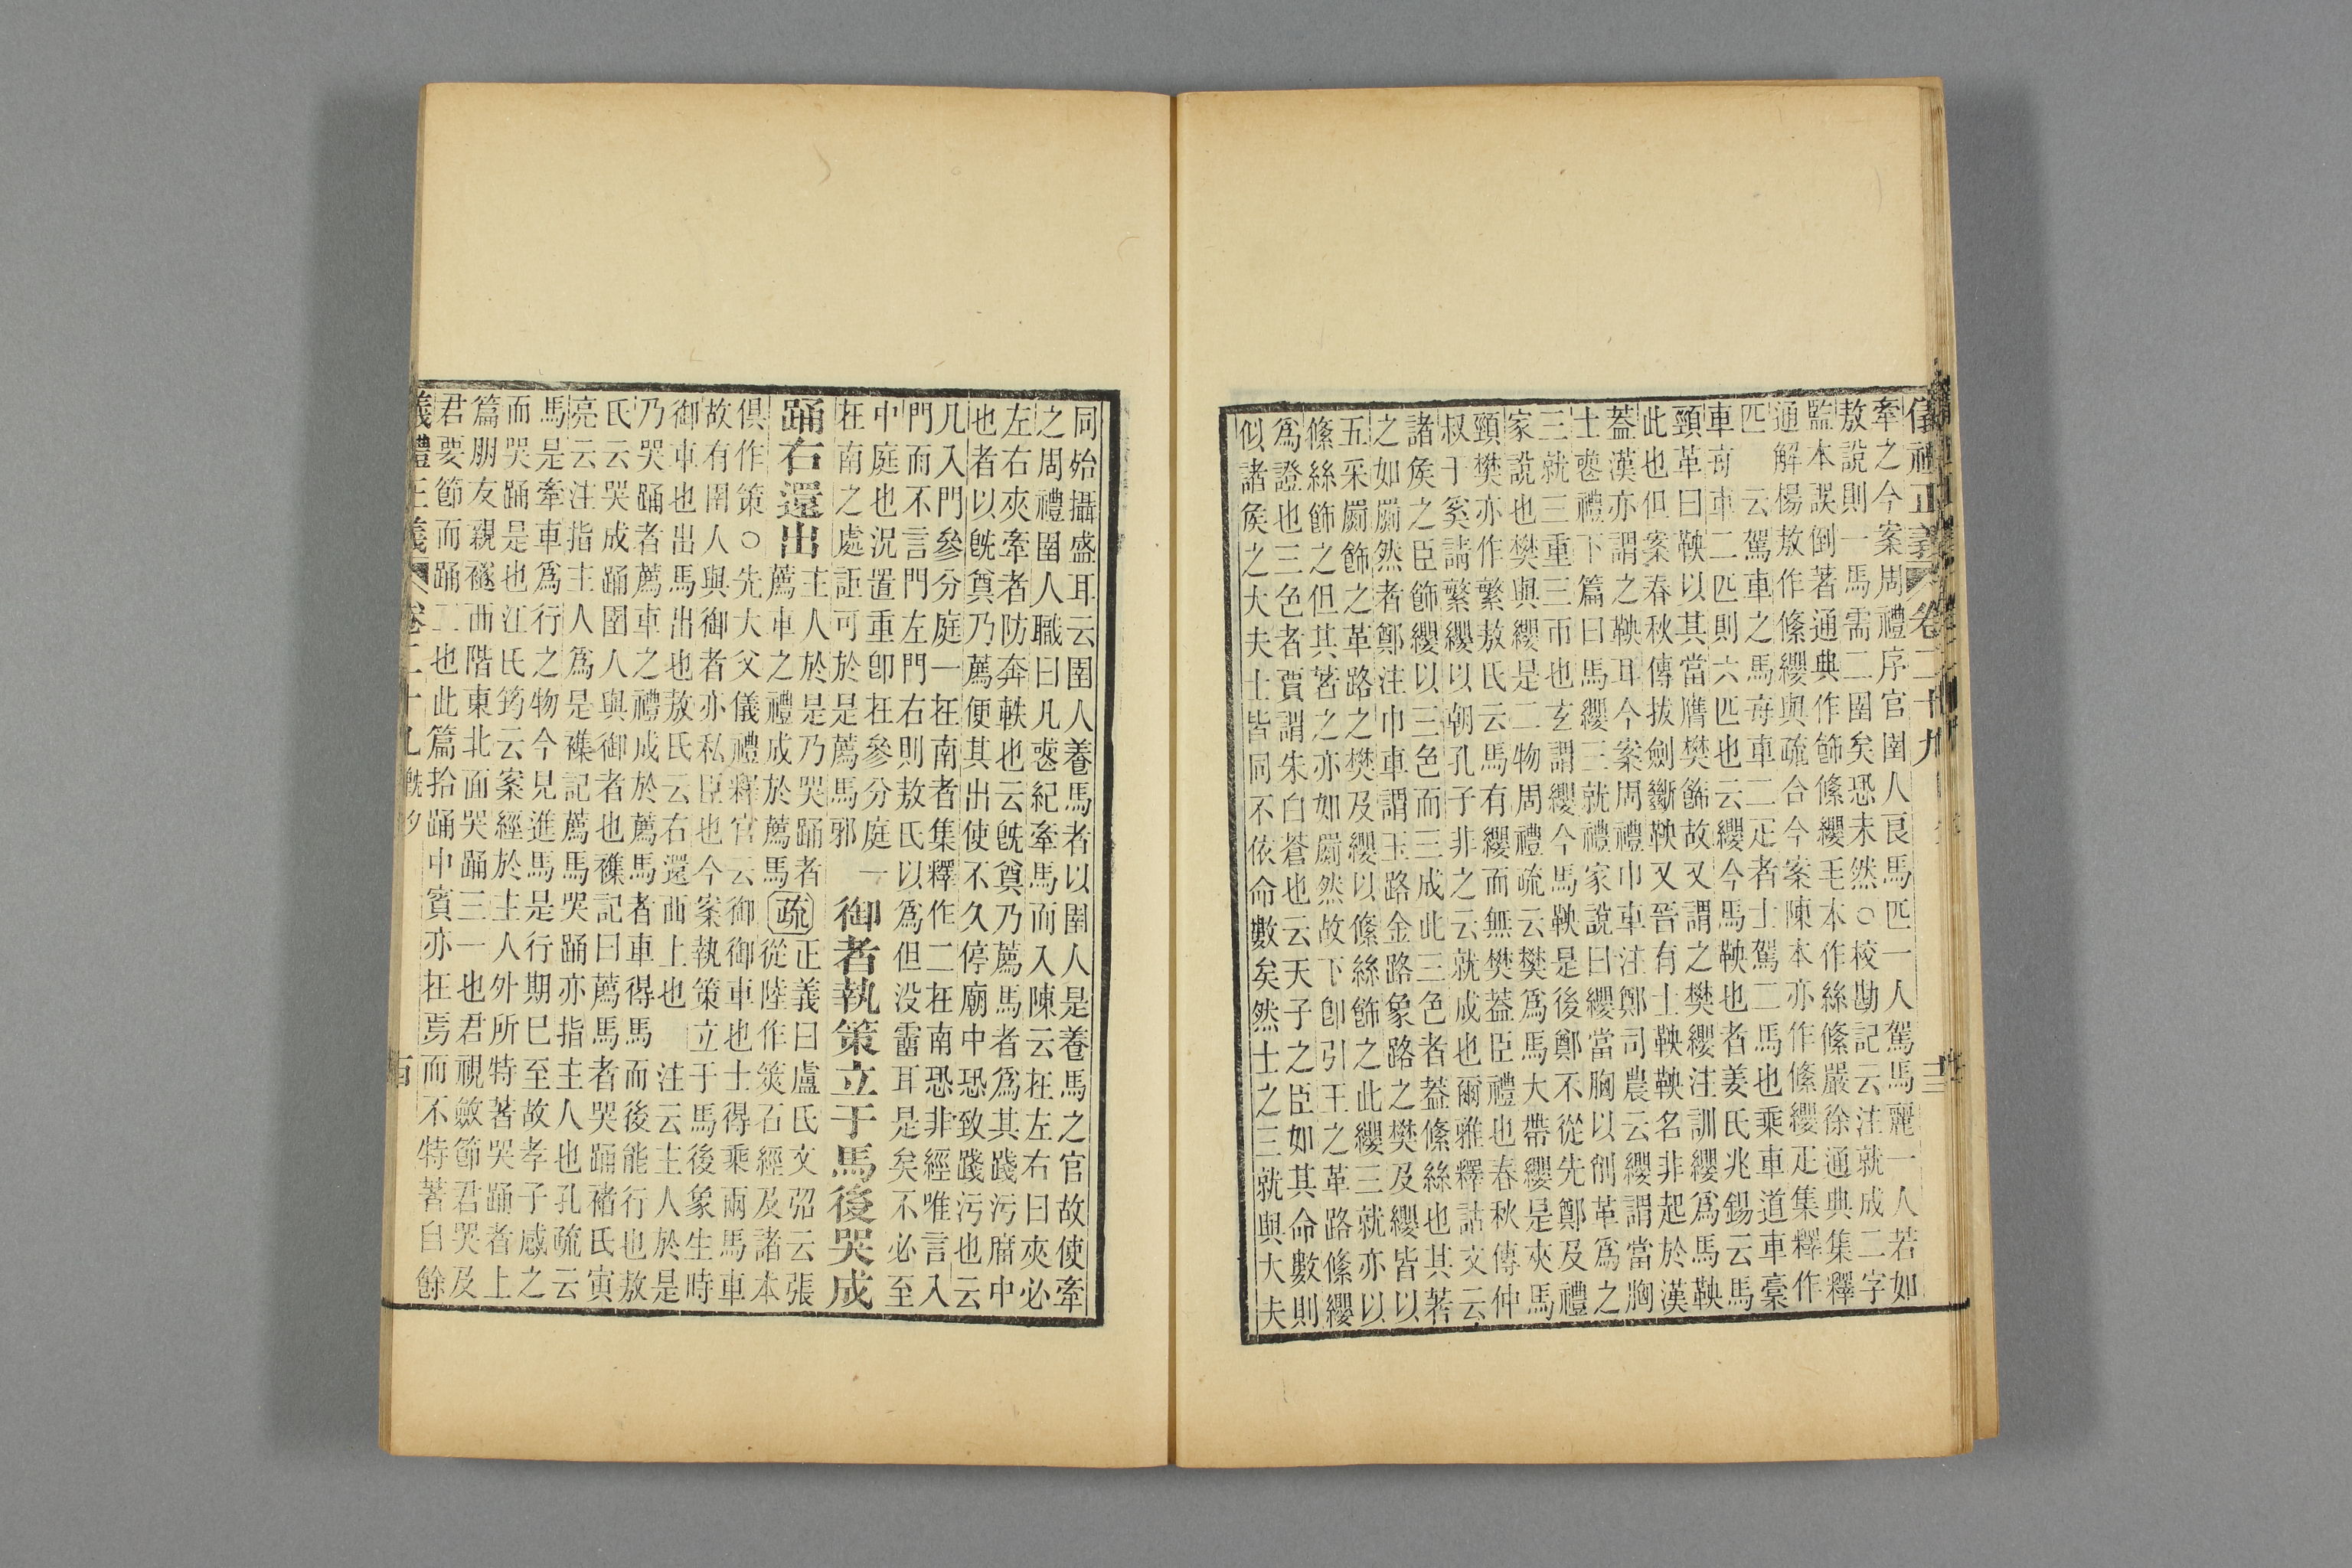 儀禮正義 卷二十九 十三
牽之今案周禮序官圉人良馬匹一人駕馬麗一人若如
敖說則一馬需二圉矣恐未然○校勘記云注就成二字
監本誤倒著通典作飾絛纓毛本作絲絛嚴徐通典集釋
通解楊敖作絛纓與疏合今案陳本亦作絛纓疋集釋作
匹 云駕車之馬每車二疋者士駕二馬也乘車道車稾
車每車二匹則六匹也云纓今馬鞅也者姜氏兆錫云馬
頸革曰鞅以其當膺樊飾故又謂之樊纓注訓纓爲馬鞅
此也但案春秋傳拔劍斷鞅又晉有士鞅鞅名非起於漢
蓋漢亦謂之鞅耳今案周禮巾車注鄭司農云纓謂當胸
士喪禮下篇曰馬纓三就禮家說曰纓當胸以削革爲之
三就三重三帀也玄謂纓今馬鞅是後鄭不從先鄭及禮
家說也樊與纓是二物周禮疏云樊爲馬大帶纓是夾馬
頸樊亦作繁敖氏云馬有纓而無樊蓋臣禮也春秋傳仲
叔于奚請繁纓以朝孔子非之云就成也爾雅釋詁文云
諸矦之臣飾纓以三色而三成此三色者蓋絛絲也其著
之如罽然者鄭注巾車謂玉路金路象路之樊及纓皆以
五采罽飾之革路之樊及纓以絛絲飾之此纓三就亦以
絛絲飾之但其著之亦如罽然故下卽引王之革路絛纓
爲證也三色者賈謂朱白蒼也云天子之臣如其命數則
似諸矦之大夫士皆同不依命數矣然士之三就與大夫
同殆攝盛耳云圉人養馬者以圉人是養馬之官故使牽
之周禮圉人職曰凡喪紀牽馬而入陳云在左右曰夾必
左右夾牽者防奔軼也云旣奠乃薦馬者爲其踐污庿中
也者以旣奠乃薦便其出使不久停廟中恐致踐污也云
凡入門參分庭一在南者集釋作二在南恐非經唯言入
門而不言門左門右則敖氏以爲但没霤耳是矣不必至
中庭也況置重卽在參分庭一
在南之處詎可於是薦馬邪
御者執策立于馬後哭成
踊右還出
主人於是乃哭踊者
薦車之禮成於薦馬
疏
正義曰盧氏文弨云張
從陸作筴石經及諸本
俱作策○先大父儀禮釋官云御御車也士得乘兩馬車
故有圉人與御者亦私臣也今案執策立于馬後象生時
御車也出馬出也敖氏云右還西上也 注云主人於是
乃哭踊者薦車之禮成於薦馬者車得馬而後能行也敖
氏云哭成踊圉人與御者也襍記曰薦馬者哭踊褚氏寅
亮云注指主人爲是襍記薦馬哭踊亦指主人也孔疏云
馬是牽車爲行之物今見進馬是行期已至故孝子感之
而哭踊是也江氏筠云案經於主人外所特著哭踊者上
篇朋友親襚西階東北面哭踊三一也君視斂節君哭及
君要節而踊二也此篇拾踊中賓亦在焉而不特著自餘
儀禮正義 卷二十九 旣夕 十四